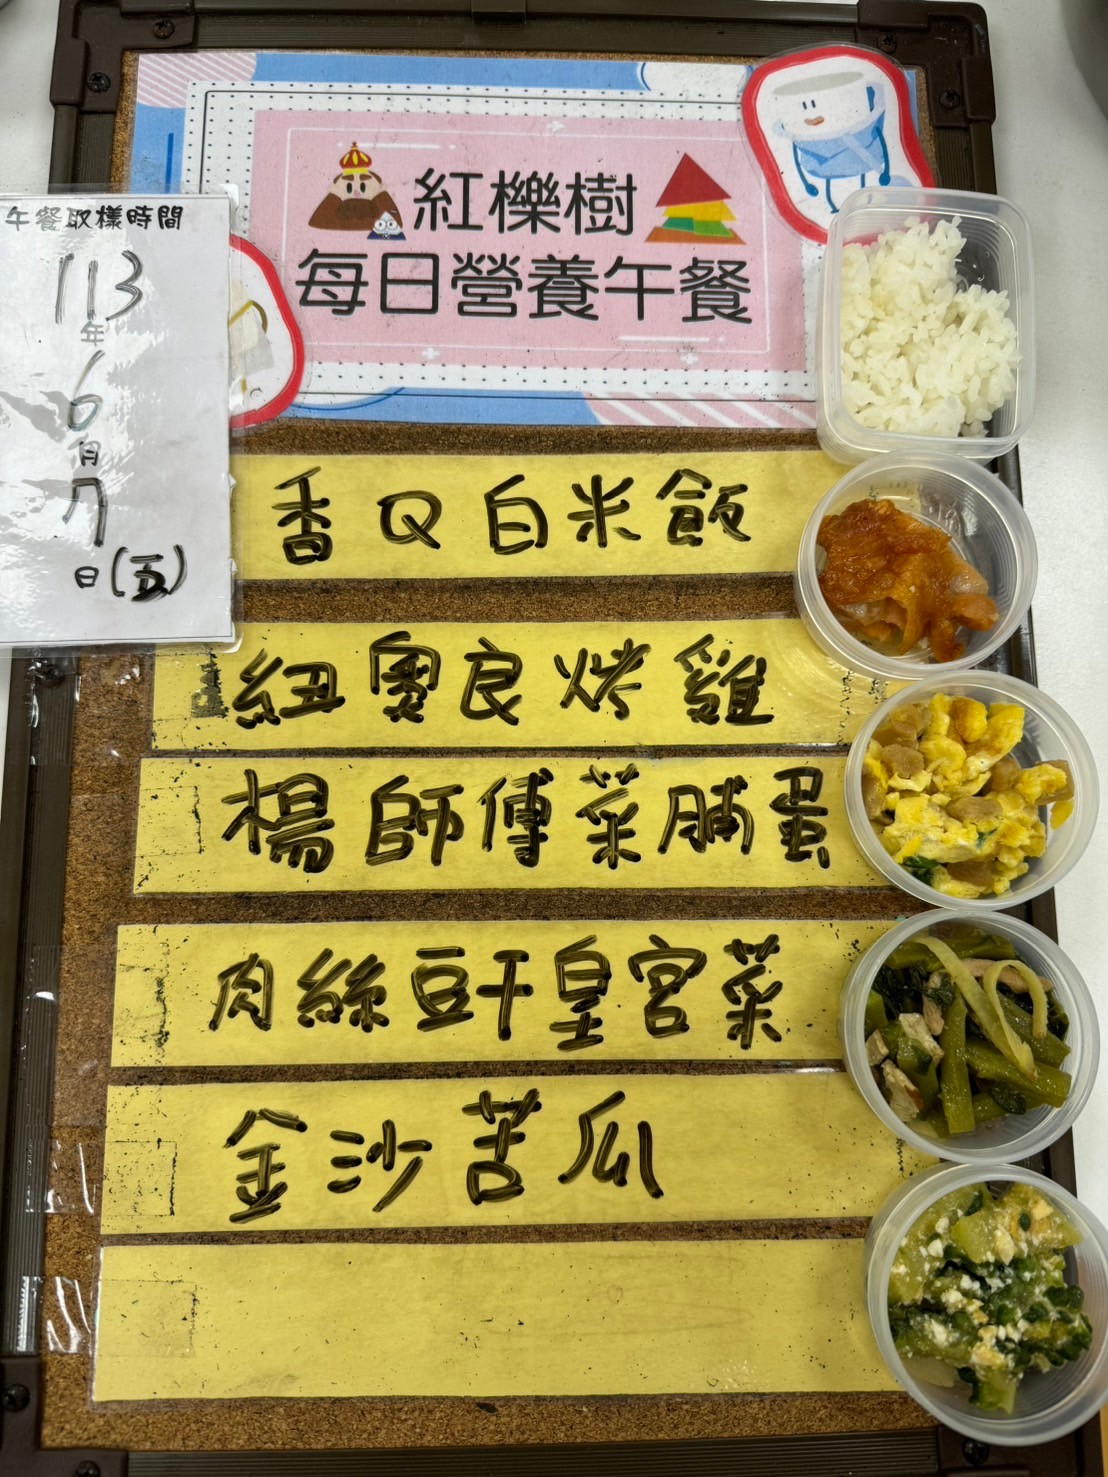 紅櫟樹
每日營養午餐
午餐取樣時間
113
年
6
月
7
日(五)
香Q白米飯
紐奧良烤雞
楊師傅菜脯蛋
肉絲豆干皇宮菜
金沙苦瓜